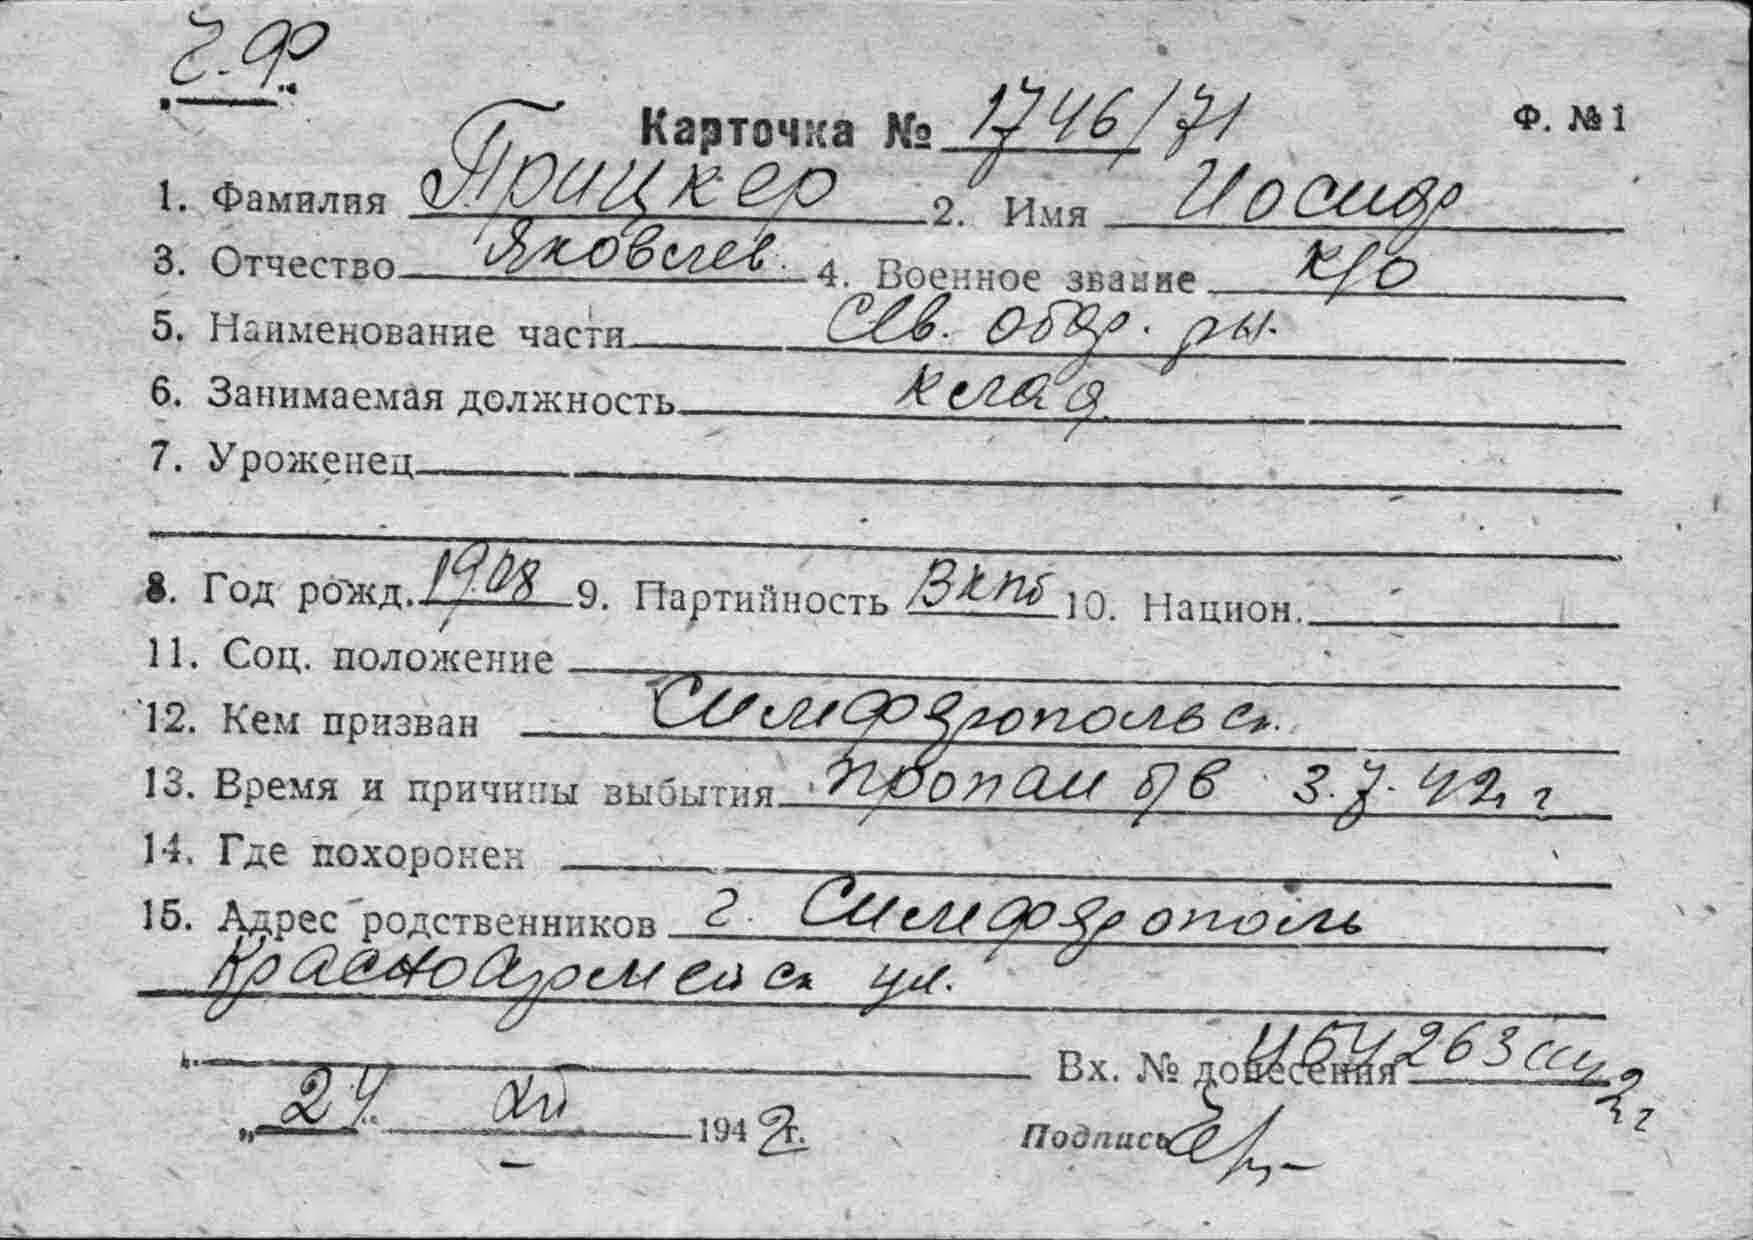 Ч.Ф
Карточка № 1746/71 Ф. № 1
1. Фамилия Прицкер 2. Имя Иосиф
3. Отчество Яковлев. 4. Военное звание к/о
5. Наименование части Сев. обор. р-н.
6. Занимаемая должность клад.
7. Уроженец
8. Год рожд. 1908 9. Партийность ВКПб 10. Национ.
11. Соц. положение
12. Кем призван Симферопольск.
13. Время и причины выбытия пропал б/в 3.7.42 г
14. Где похоронен
15. Адрес родственников г. Симферополь
Красноармейск ул.
Вх. № донесения
„24“ XII 1942г. Подпись